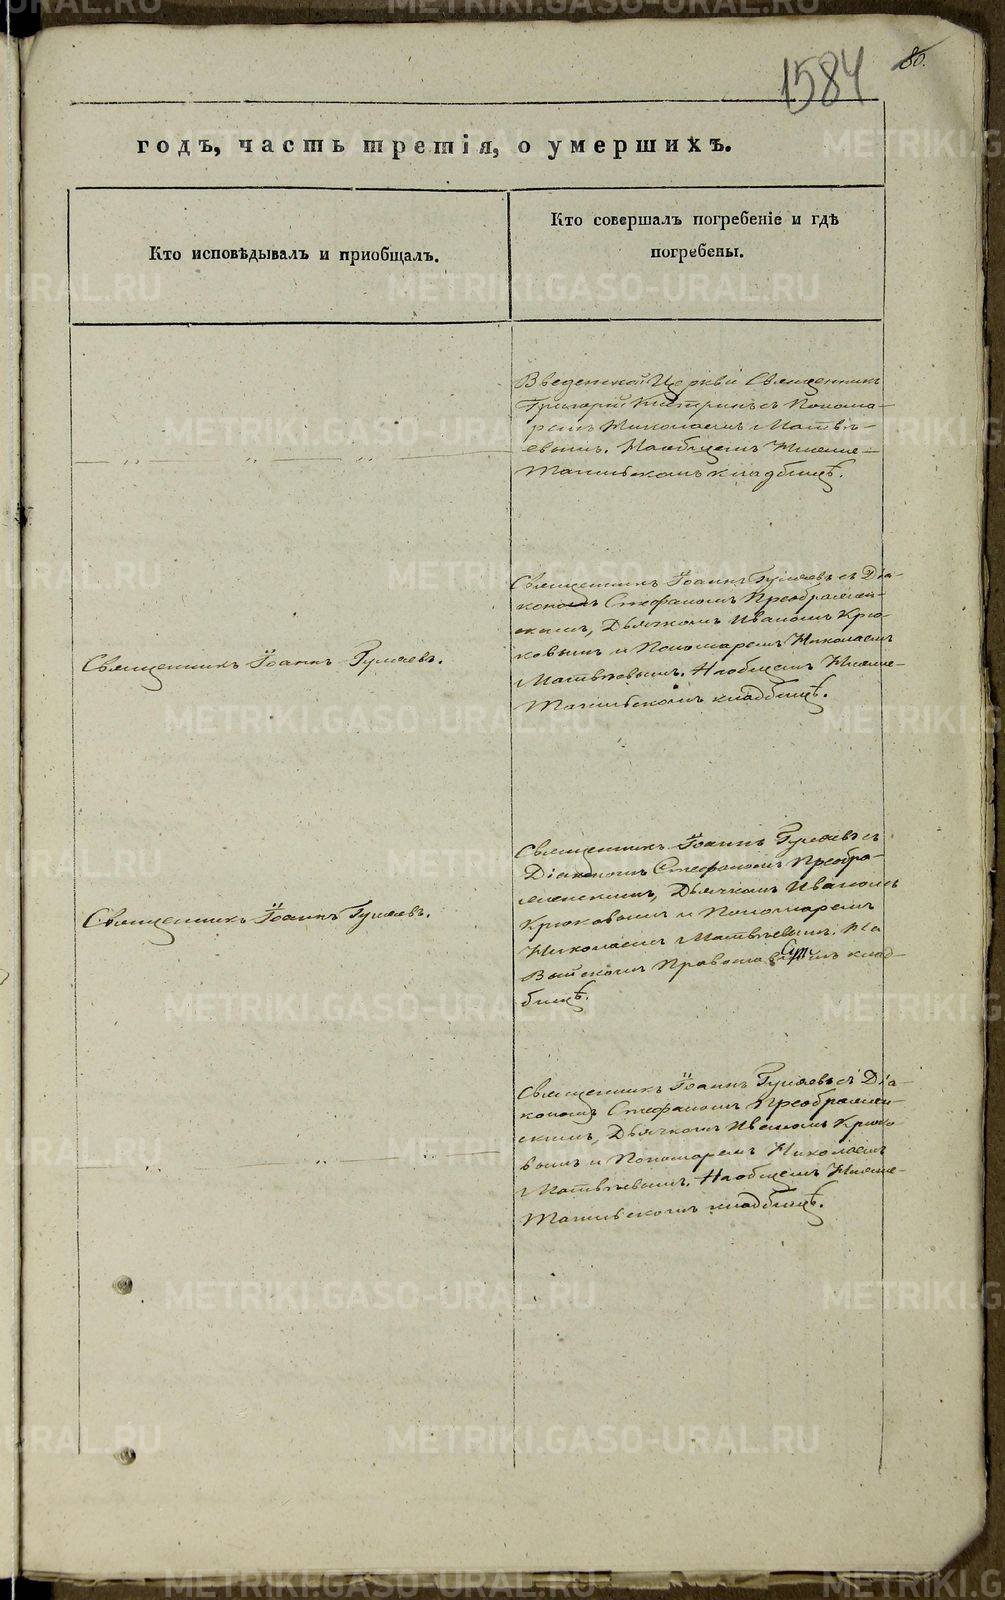 1584
80.
годъ, часть третія, о умершихъ.
Кто исповѣдывалъ и приобщалъ.
Кто совершалъ погребеніе и гдѣ
погребены.
Введенской Церкви Священникъ
Григорій съ Понома-
ремъ Николаемъ Матвѣ-
евымъ. Наобщемъ Нижне-
Тагильскомъ кладбищѣ.
Священникъ Іоаннъ Гуляевъ.
Священникъ Іоаннъ Гуляевъ съ Діа-
кономъ Стефаномъ Преображен-
скимъ, Дьячкомъ Иваномъ Крю-
ковымъ и Пономаремъ Николаемъ
Матвѣевымъ. Наобщемъ Нижне-
Тагильскомъ кладбищѣ.
Священникъ Іоаннъ Гуляевъ.
Священникъ Іоаннъ Гуляевъ съ
Діакономъ Стефаномъ Преобра-
женскимъ, Дьячкомъ Иваномъ
Крюковымъ и Пономаремъ
Николаемъ Матвѣевымъ. На
Выйскомъ клад-
бищѣ.
Священникъ Іоаннъ Гуляевъ съ Діа-
кономъ Стефаномъ Преображен-
скимъ, Дьячкомъ Иваномъ Крюко-
вымъ и Пономаремъ Николаемъ
Матвѣевымъ. Наобщемъ Нижне-
Тагильскомъ кладбищѣ.
METRIKI.GASO-URAL.RU